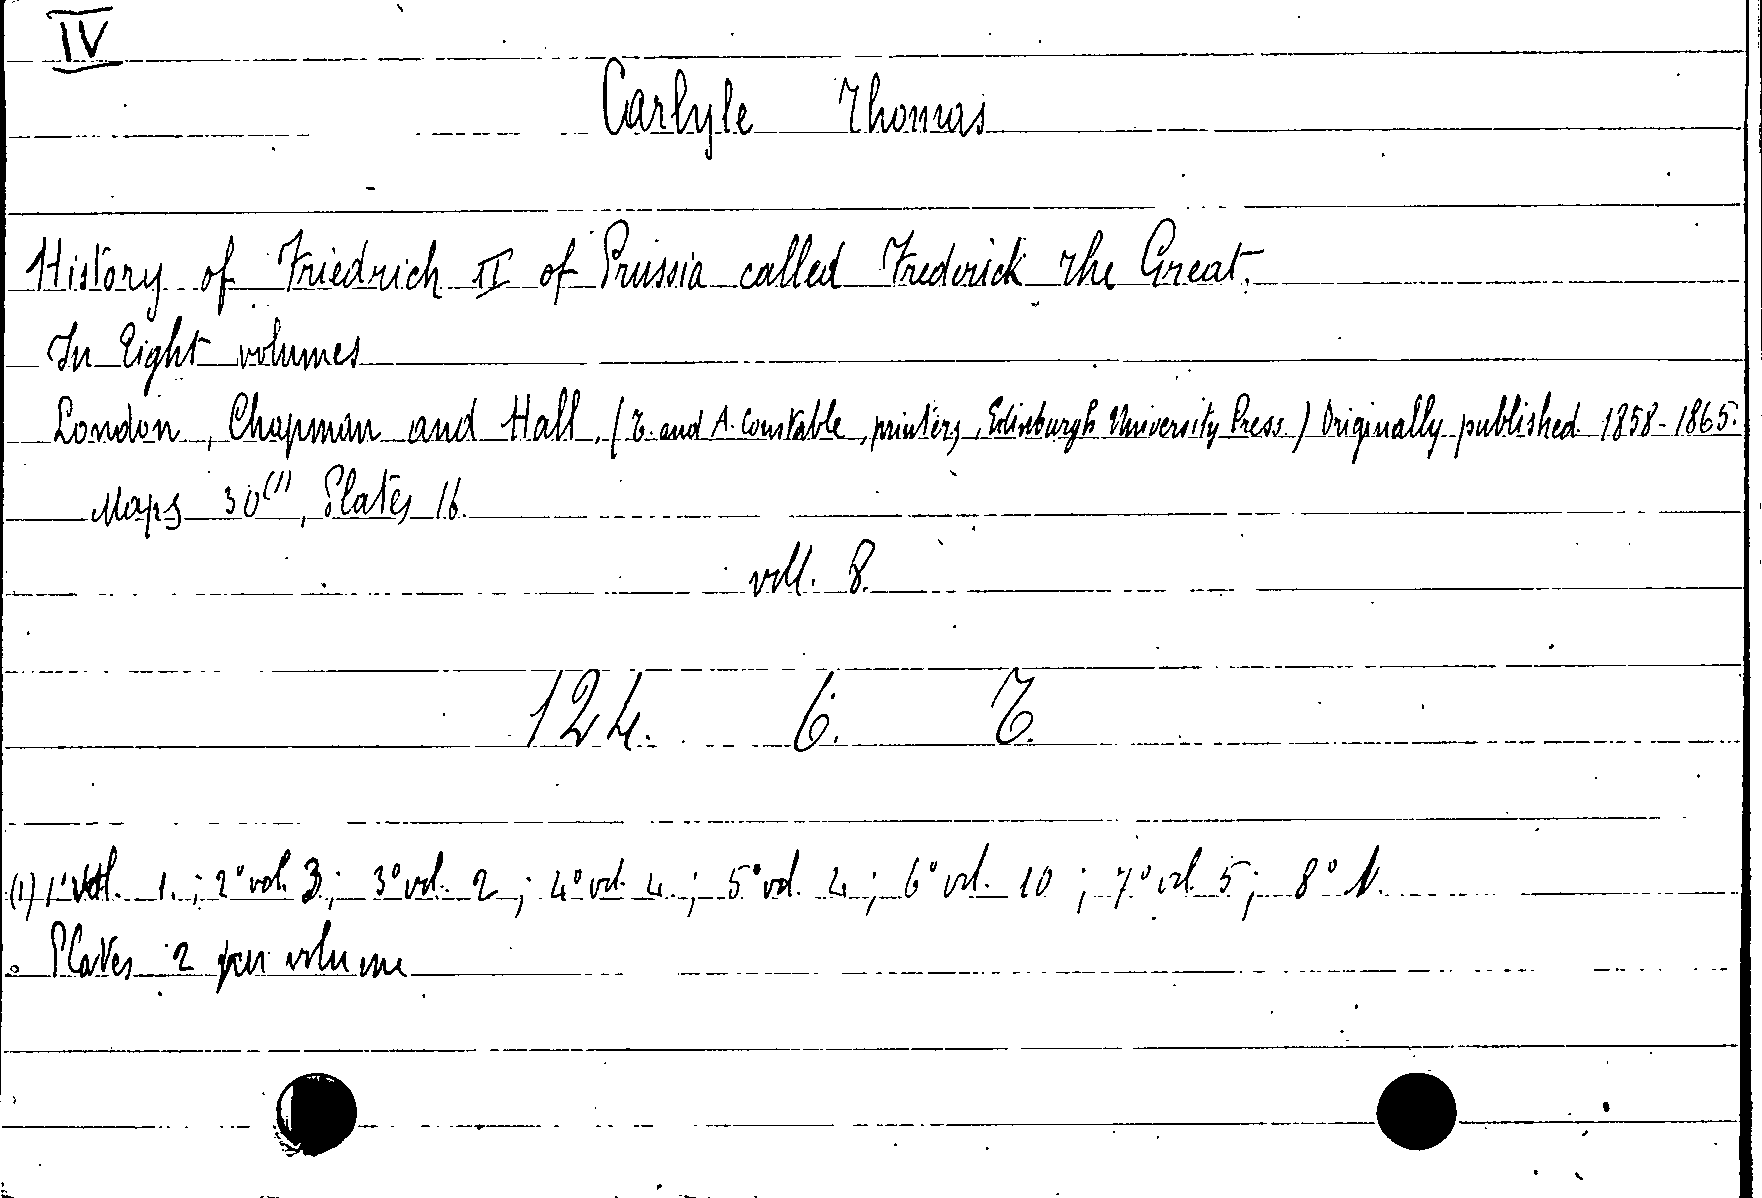 IV
Carlyle Thomas
History of Friedrich II of Prussia called Frederick the Great.
In Eight volumes
London, Chapman and Hall, (T. and A. Constable, printers, Edinburgh University Press.) Originally published 1858-1865.
Maps 30(1), Plates 16.
voll. 8.
124. 6. 7.
(1) 1° vol. 1.; 2° vol. 3; 3° vol. 2; 4° vol. 4.; 5° vol. 4; 6° vol. 10; 7° vol. 5; 8° 1.
Plates 2 per volume